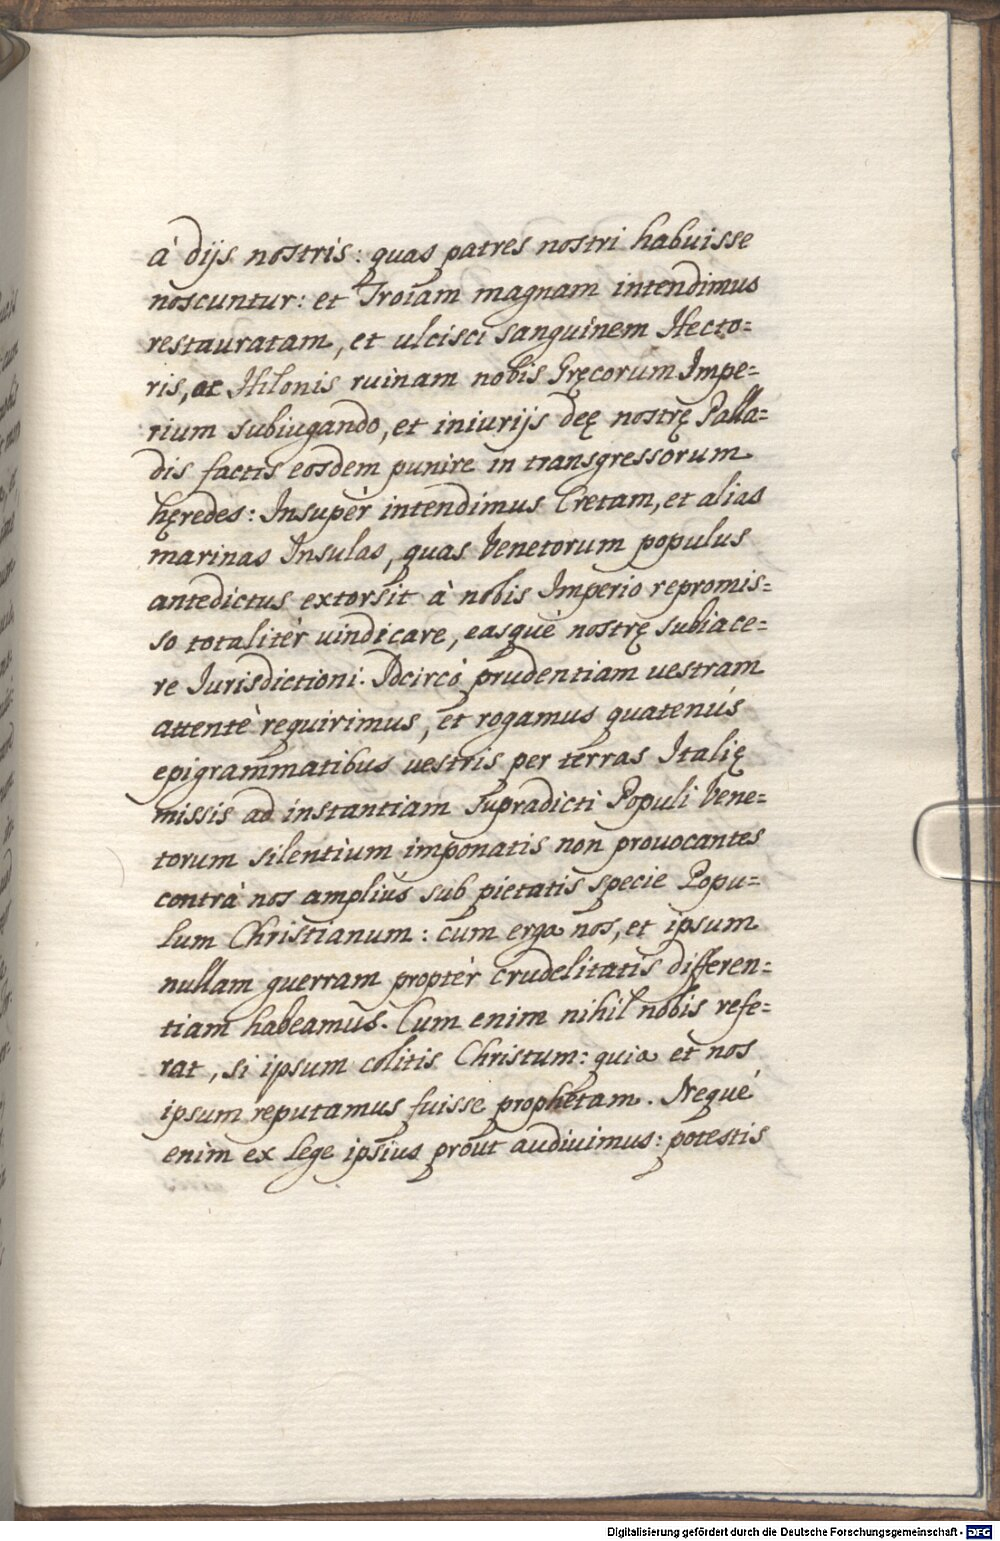 à dijs nostris: quas patres nostri habuisse
noscuntur: et Troiam magnam intendimus
restauratam, et ulcisci sanguinem Hecto=
ris, ac Hilonis ruinam nobis Gręcorum Impe=
rium subiugando, et iniurijs deę nostrę Palla=
dis factis eosdem punire in transgressorum
hęredes: Insupèr intendimus Cretam, et alias
marinas Insulas, quas Venetorum populus
antedictus extorsit à nobis Imperio repromis=
so totalitèr vindicare, easquè nostrę subiace=
re Iurisdictioni. Idcircò prudentiam vestram
attentè requirimus, et rogamus quatenùs
epigrammatibus vestris per terras Italię
missis ad instantiam supradicti Populi Vene=
torum silentium imponatis non provocantes
contrà nos ampliùs sub pietatis specie Popu=
lum Christianum: cum erga nos, et ipsum
nullam guerram proptèr crudelitatis differen=
tiam habeamus. Cum enim nihil nobis refe=
rat, si ipsum colitis Christum: quia et nos
ipsum reputamus fuisse prophetam. Nequè
enim ex lege ipsius proùt audivimus: potestis
Digitalisierung gefördert durch die Deutsche Forschungsgemeinschaft - DFG